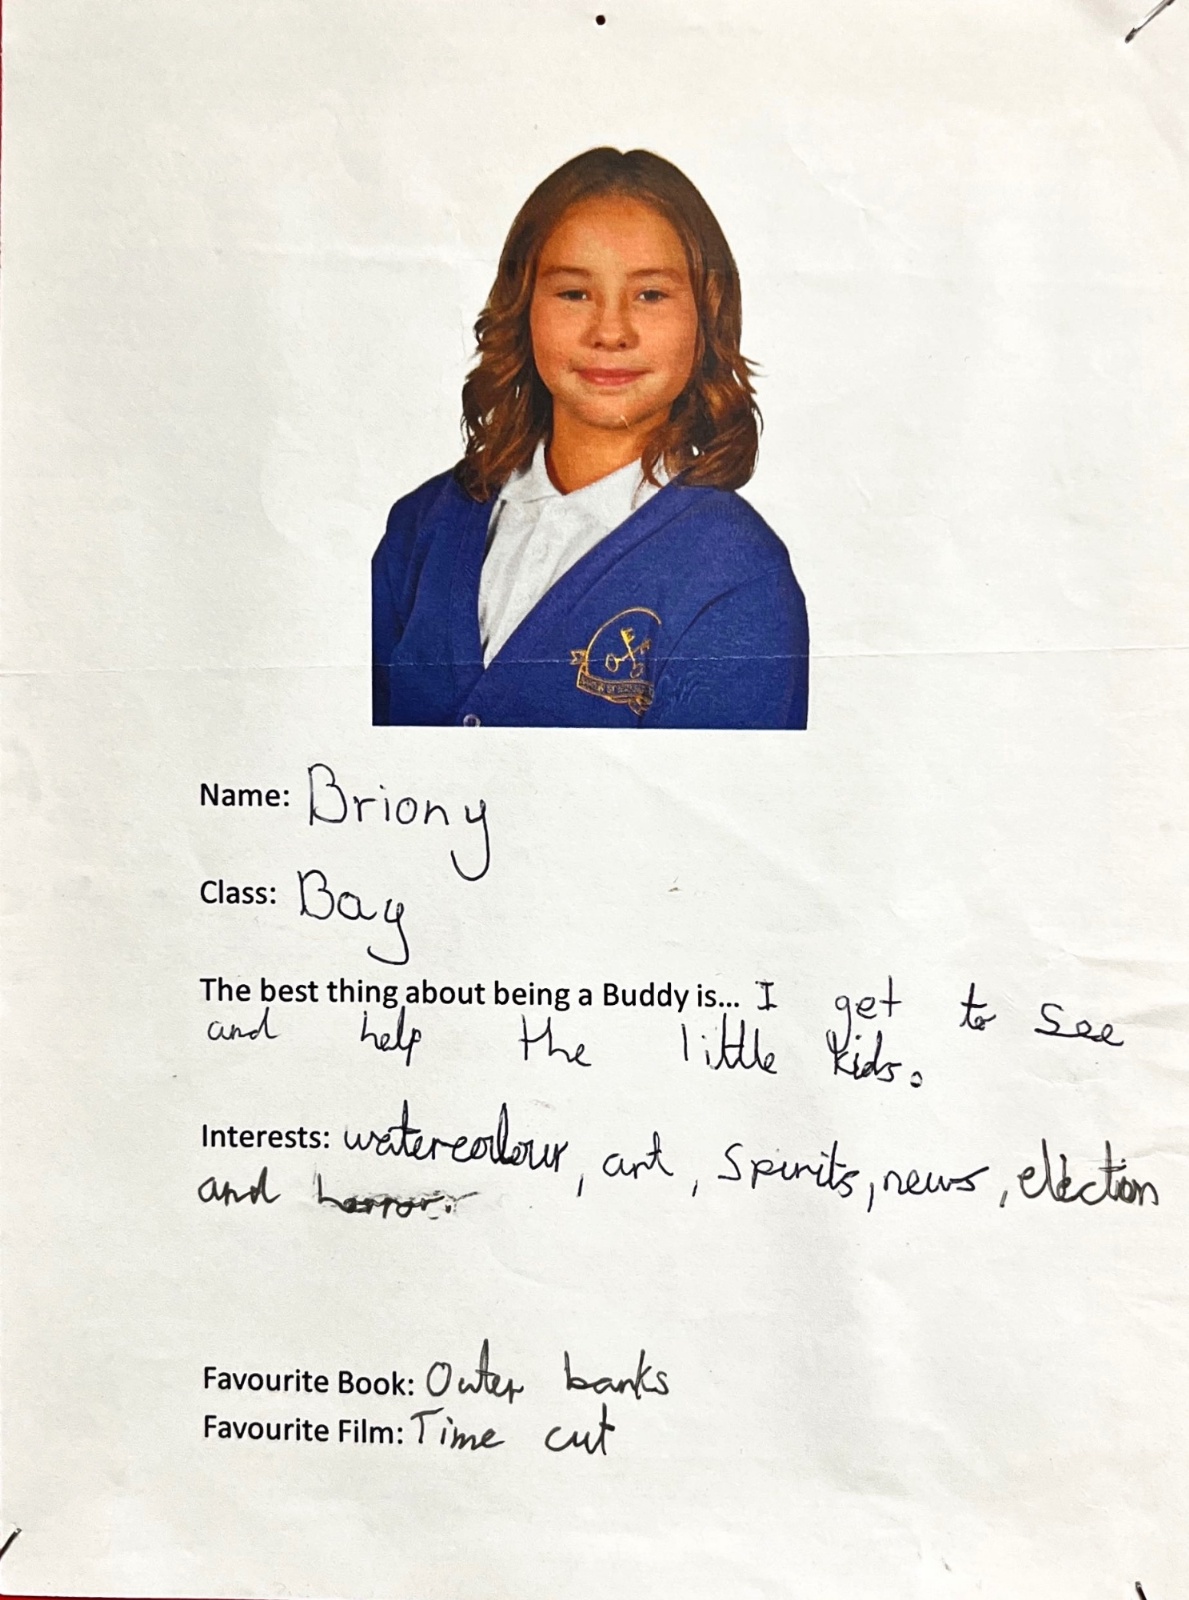 Name: Briony
Class: Bay
The best thing about being a Buddy is... I get to see
and help the little kids.
Interests: watercolour, art, Spirits, news, election
and horror.
Favourite Book: Outer banks
Favourite Film: Time cut